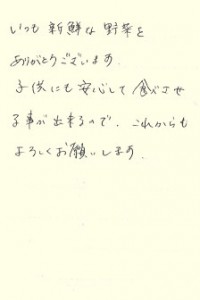 いつも 新鮮な 野菜を
ありがとうございます.
子供にも 安心して 食べさせ
る事が出来るので、これからも
よろしくお願いします.